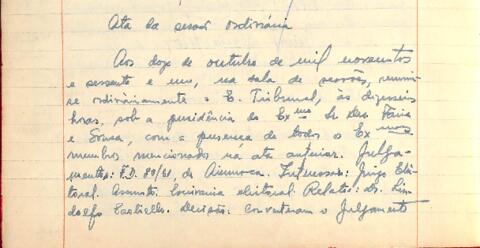 Ata da sessão ordinária
Aos doze de outubro de mil novecentos
e sessenta e um, na sala de sessões, reuniu-
se ordinàriamente o E. Tribunal, às dezesseis
horas, sob a presidência do Exmo Sr. Des. Faria
e Sousa, com a presença de todos os Exmos
membros mencionados na ata anterior. Julga-
mentos: F.D. 29/61, de Aiuruoca. Interessado: Juizo Elei-
toral. Assunto: Escrivania eleitoral. Relator: Dr. Lin-
dolfo Decisão: Converteram o julgamento